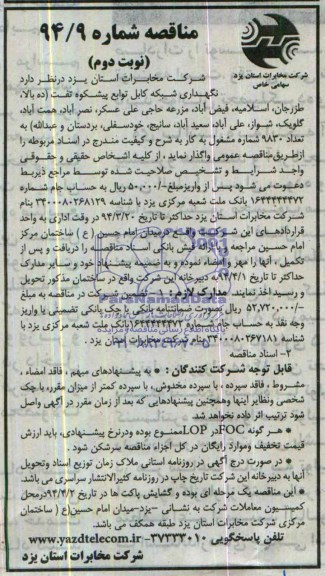 مناقصه شماره ۹۴/۹
(نوبت دوم)
شرکت مخابرات استان یزد
سهامی خاص
شرکت مخابرات استان یزد درنظر دارد
نگهداری شبکه کابل توابع پیشکوه تفت (ده بالا،
طزرجان، اسلامیه، فیض آباد، مزرعه حاجی علی عسکر، نصر آباد، همت آباد،
گلویک، شواز، علی آباد، سعید آباد، سانیج، خودسفلی، بردستان و عبدالله) به
تعداد ۹۸۳۰ شماره مشغول به کار به شرح و کیفیت مندرج در اسناد مربوطه را
ازطریق مناقصه عمومی واگذار نماید ، از کلیه اشخاص حقیقی و حقوقی
واجد شرایط و تشخیص صلاحیت شده توسط مراجع ذیربط
دعوت می شود پس از واریزمبلغ ۵۰,۰۰۰/- ریال به حساب جام شماره
۱۶۴۴۴۴۴۷۲ بانک ملت شعبه مرکزی یزد با شناسه ۳۴۰۰۰۸۰۲۶۸۱۲۹ بنام
شرکت مخابرات استان یزد حداکثر تا تاریخ ۹۴/۳/۲۰ در وقت اداری به واحد
قراردادهای این شرکت واقع درمیدان امام حسین (ع) ساختمان مرکز
امام حسین مراجعه و با ارائه فیش بانکی اسناد مناقصه را دریافت و پس از
تکمیل ، آنها را مهر و امضاء نموده و به ضمیمه پیشنهاد خود و سایر مدارک
حداکثر تا تاریخ ۹۴/۴/۱ به دبیرخانه این شرکت واقع در ساختمان مذکور تحویل
و رسید اخذ نمایند. مدارک لازم: ۱- تضمین شرکت در مناقصه به مبلغ
۵۲,۷۲۰,۰۰۰/- ریال بصورت ضمانتنامه بانکی یا چک بانکی تضمینی یا واریز
وجه نقد به حساب جام شماره ۱۶۴۴۴۴۴۷۲ بانک ملت شعبه مرکزی یزد با
شناسه ۳۳۰۰۰۸۰۲۶۷۱۸۱ بنام شرکت مخابرات استان یزد .
۲- اسناد مناقصه
قابل توجه شرکت کنندگان : • به پیشنهادهای مبهم ، فاقد امضاء ،
مشروط ، فاقد سپرده ، با سپرده مخدوش، با سپرده کمتر از میزان مقرر، با چک
شخصی ونظایر اینها وهمچنین پیشنهادهایی که بعد از زمان مقرر در آگهی واصل
شود ترتیب اثر داده نخواهد شد.
• هر گونه FOCدر LOPممنوع بوده ودرنرخ پیشنهادی، باید ارزش
قیمت تخفیف وموارد رایگان در کل اجزاء مناقصه سرشکن شود .
• در صورت درج آگهی در روزنامه استانی ملاک زمان توزیع اسناد وتحویل
آنها به دبیرخانه این شرکت تاریخ چاپ در روزنامه کثیرالانتشار سراسری می باشد.
• این مناقصه یک مرحله ای بوده و گشایش پاکت ها در تاریخ ۹۴/۴/۲ درمحل
کمیسیون معاملات شرکت به نشانی -یزد-میدان امام حسین(ع) ساختمان
مرکزی شرکت مخابرات استان یزد طبقه همکف می باشد.
تلفن پاسخگویی ۳۷۳۳۳۰۱۰- www.yazdtelecom.ir
شرکت مخابرات استان یزد